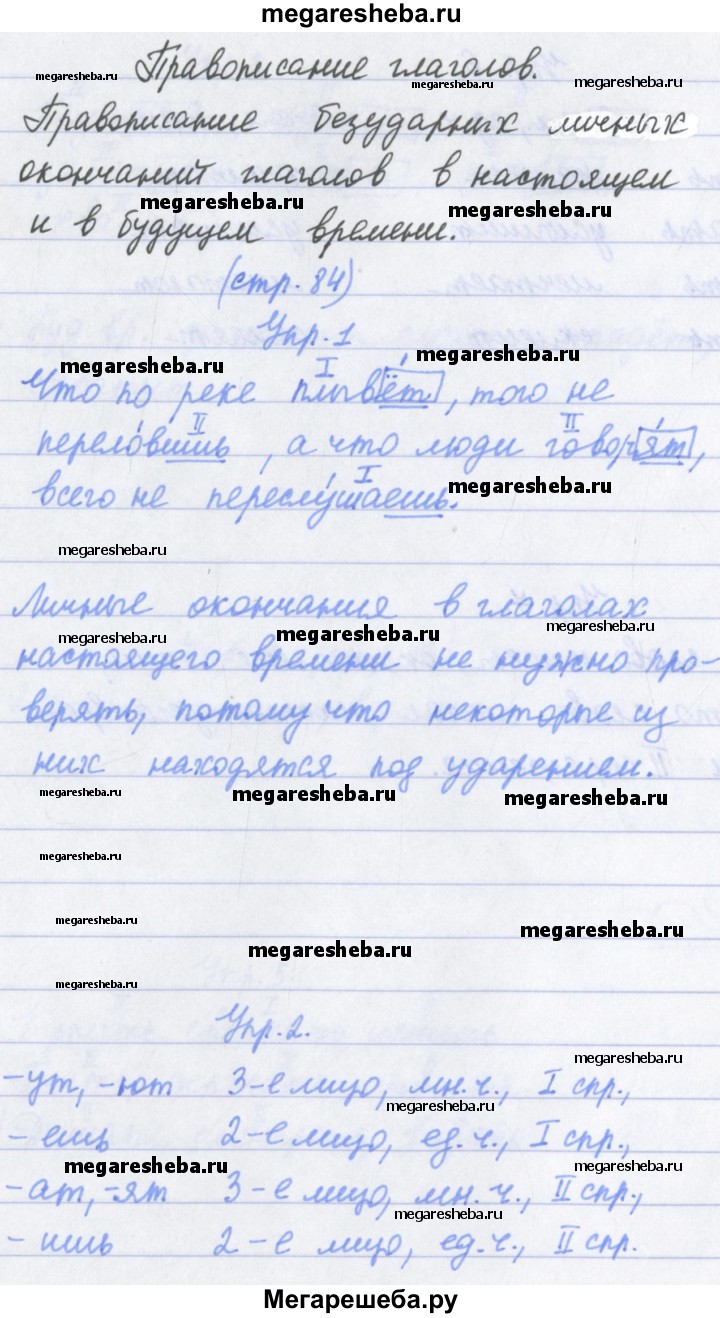 megaresheba.ru
Правописание глаголов.
megaresheba.ru megaresheba.ru megaresheba.ru
Правописание безударных личных
окончаний глаголов в настоящем
megaresheba.ru megaresheba.ru
и в будущем времени.
(стр. 84)
Упр. 1
megaresheba.ru megaresheba.ru
I
Что по реке плывёт, того не
II II
переловишь, а что люди говорят,
I
всего не переслушаешь.
megaresheba.ru
megaresheba.ru
Личные окончания в глаголах
megaresheba.ru megaresheba.ru megaresheba.ru
настоящего времени не нужно про-
верять, потому что некоторые из
них находятся под ударением.
megaresheba.ru megaresheba.ru megaresheba.ru
megaresheba.ru
megaresheba.ru megaresheba.ru
megaresheba.ru
megaresheba.ru
Упр. 2.
megaresheba.ru
-ут, -ют 3-е лицо, мн.ч., I спр.,
megaresheba.ru
-ешь 2-е лицо, ед.ч., I спр.,
megaresheba.ru megaresheba.ru
-ат, -ят 3-е лицо, мн.ч., II спр.,
megaresheba.ru
-ишь 2-е лицо, ед.ч., II спр.
megaresheba.ru megaresheba.ru
Мегарешеба.ру